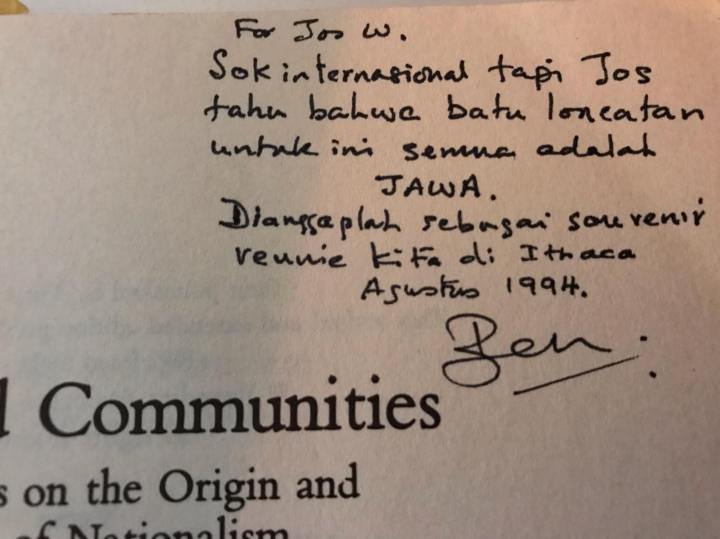 For Jos W.
Sok internasional tapi Jos
tahu bahwa batu loncatan
untuk ini semua adalah
JAWA.
Dianggaplah sebagai souvenir
reunie kita di Ithaca
Agustus 1994.
Ben
d Communities
s on the Origin and
of Nationalism